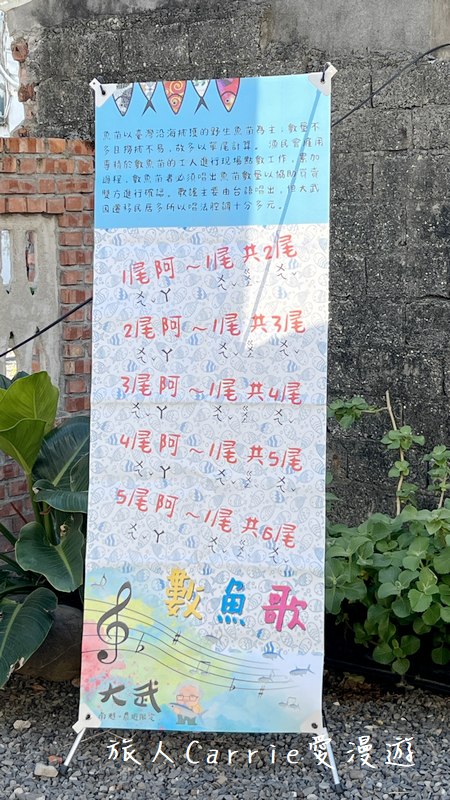 魚苗以臺灣沿海捕獲的野生魚苗為主，數量不
多且撈捕不易，故多以單尾計算。漁民會雇用
專精於數魚苗的工人進行現場點數工作，累加
過程，數魚苗者必須唱出魚苗數量以協助買賣
雙方進行確認。歌謠主要由台語唱出，但大武
因遷移民居多所以唱法腔調十分多元。
1尾阿～1尾共2尾
ㄨㄟˇ ㄚ ㄨㄟˇ ㄍㄨㄥ ㄨㄟˇ
2尾阿～1尾共3尾
ㄨㄟˇ ㄚ ㄨㄟˇ ㄍㄨㄥ ㄨㄟˇ
3尾阿～1尾共4尾
ㄨㄟˇ ㄚ ㄨㄟˇ ㄍㄨㄥ ㄨㄟˇ
4尾阿～1尾共5尾
ㄨㄟˇ ㄚ ㄨㄟˇ ㄍㄨㄥ ㄨㄟˇ
5尾阿～1尾共6尾
ㄨㄟˇ ㄚ ㄨㄟˇ ㄍㄨㄥ ㄨㄟˇ
數魚歌
大武
南迴・慢遊限定
旅人Carrie愛漫遊